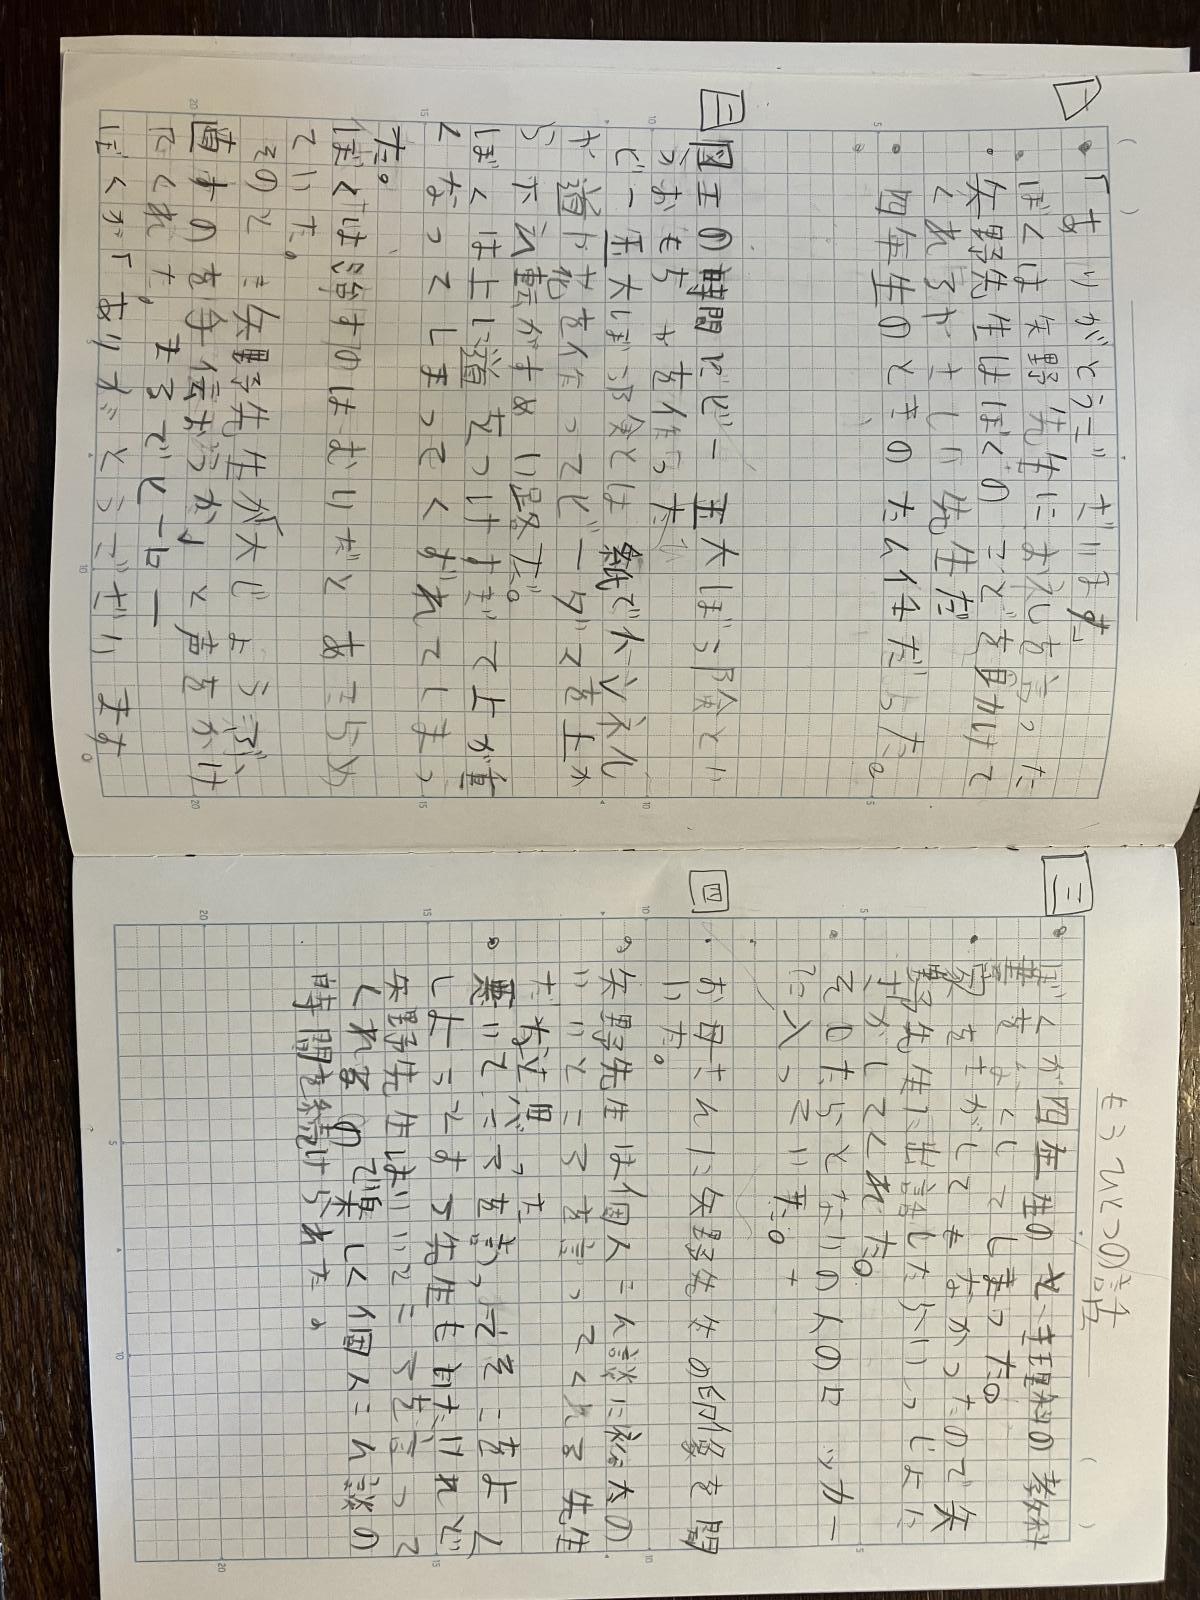 一
「ありがとうございます」
ぼくは矢野先生にお礼を言った
矢野先生はぼくのことを助けて
くれるやさしい先生だ
四年生のときのたん任だった。
二
図工の時間にビー玉大ぼう険とい
うおもちゃを作った
ビー玉大ぼう険とは紙で小立礼化
や道や穴を作ってビー玉を上か
ら下に転がすめい路だ。
ぼくは上に道をつけすぎて上が重
くなってしまってくずれてしまっ
た。
ぼくは治すのはむりだとあきらめ
ていた。
そのとき矢野先生が「大じょうぶ、
直すのを手伝おうか」と声をかけ
てくれた。まるでヒーロー
ぼくが「ありがとうございます
もう一つの話
三
ぼくが四年生のとき理科の教科
書をなくしてしまった。
家をさがしてもなかったので矢
野先生に相話したらいっしょに
さがしてくれた。
そしたらとなりの人のロッカー
に入っていた。
四
お母さんに矢野先生の印象を聞
いた。
矢野先生は個人こん談に裕太の
いいところを言ってくれる先生
だなと思った
悪いところを言ってそこをよく
しようとする先生もいたけれど
矢野先生はいいところを言って
くれるので楽しく個人こん談の
時間を続けられた。